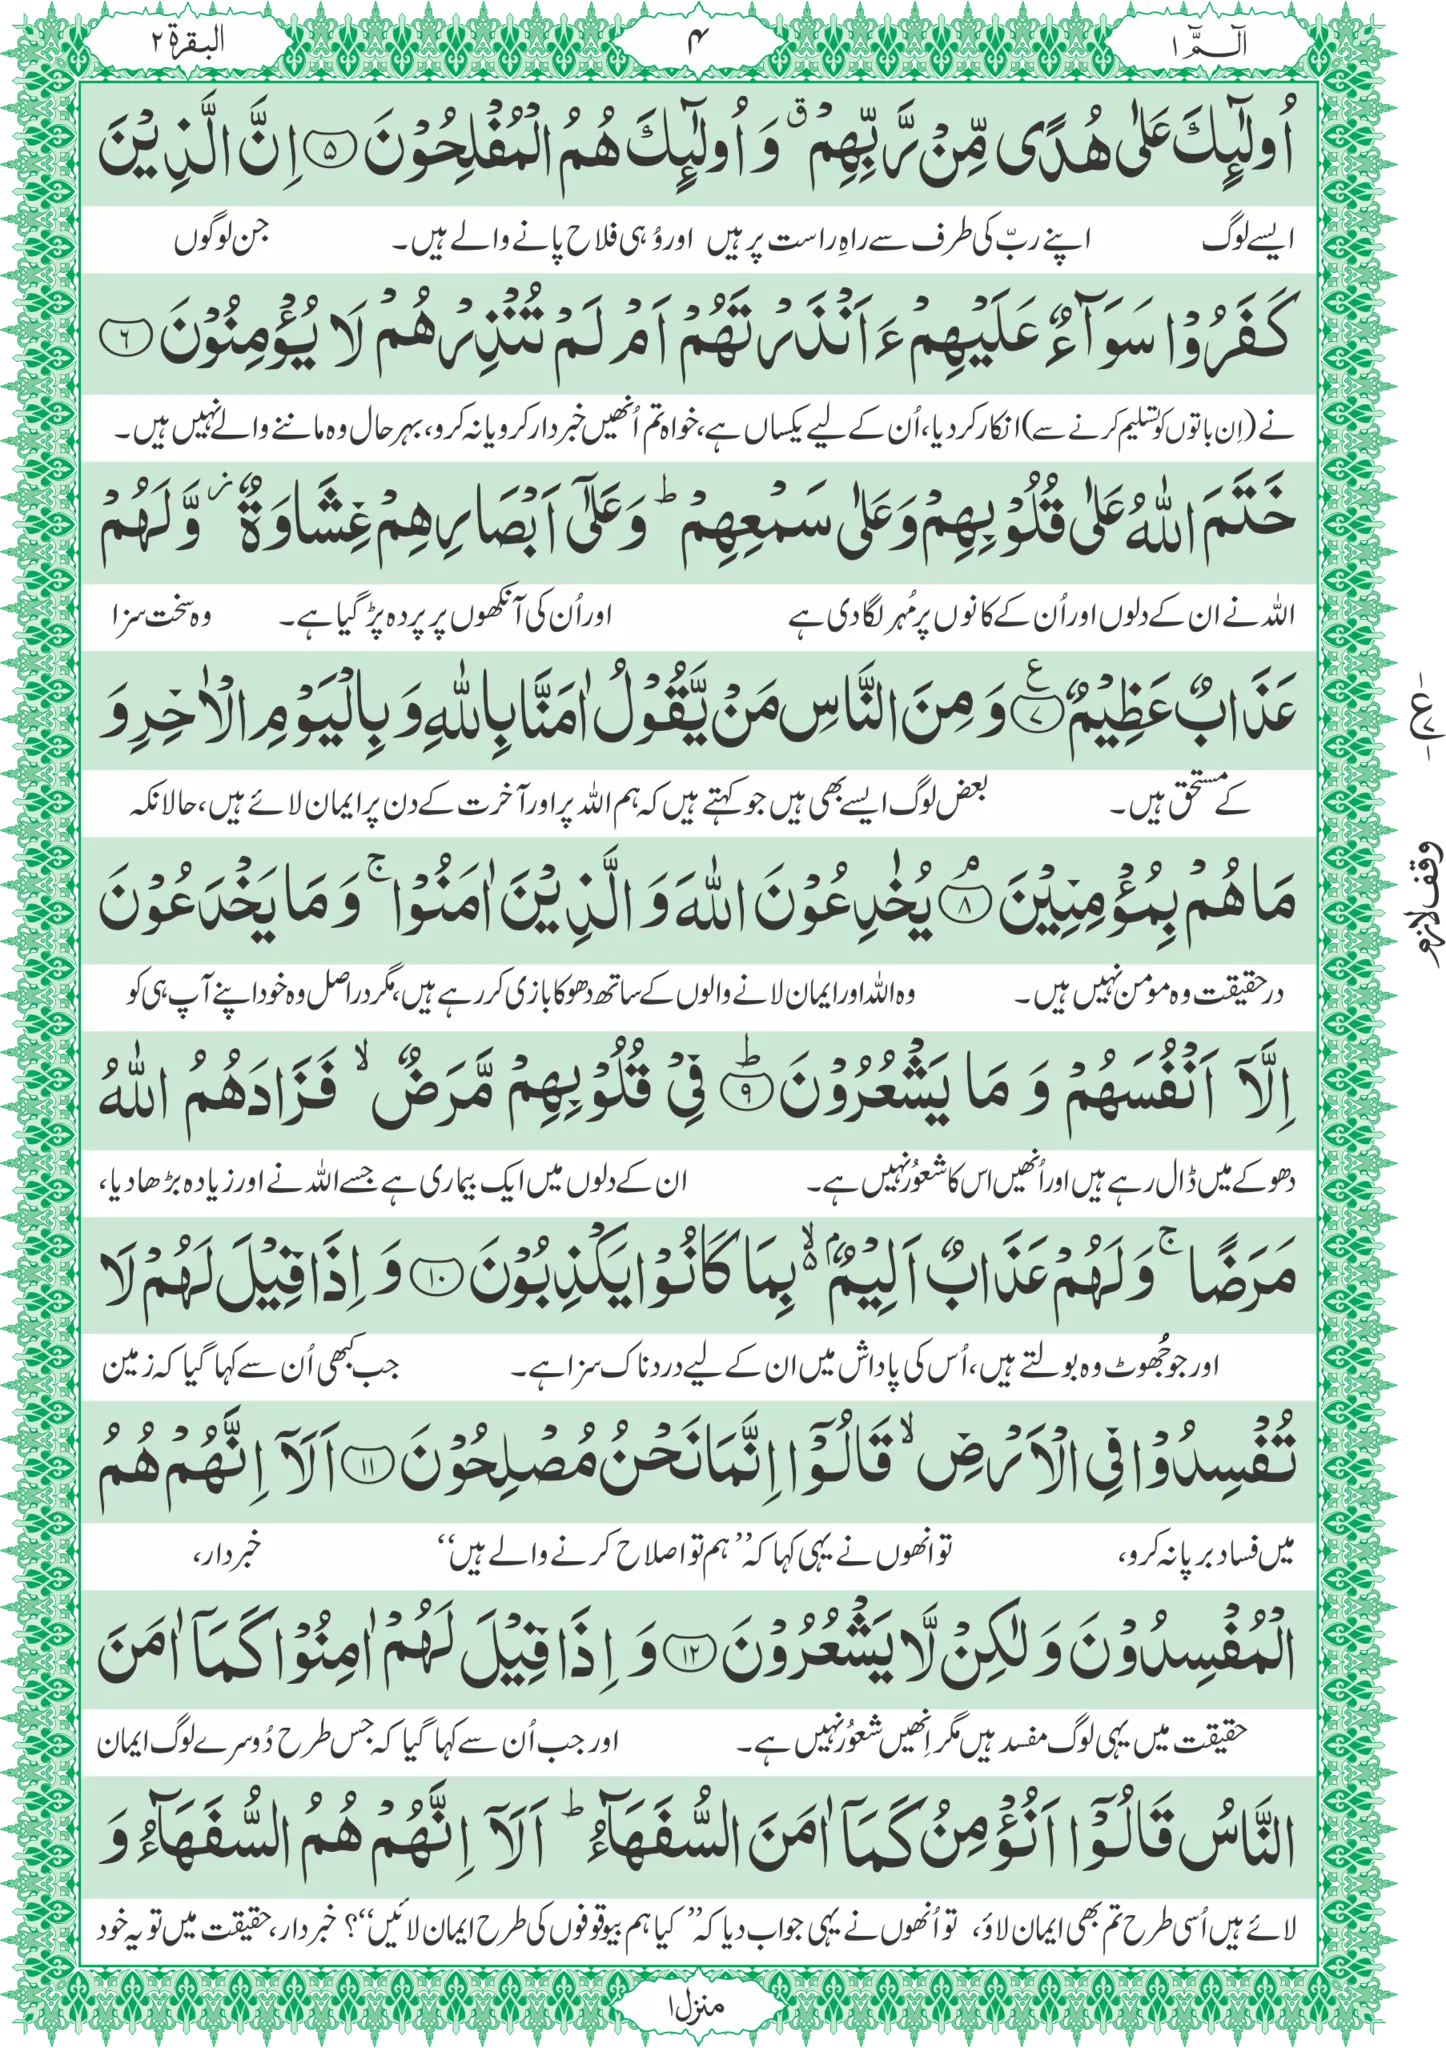 الٓـمّٓ ۱
۴
البقرة ۲
اُولٰٓئِكَ عَلٰی هُدًی مِّنْ رَّبِّهِمْ ۗ وَ اُولٰٓئِكَ هُمُ الْمُفْلِحُوْنَ ﴿۵﴾ اِنَّ الَّذِیْنَ
ایسے لوگ اپنے ربّ کی طرف سے راہِ راست پر ہیں اور وُہی فلاح پانے والے ہیں۔ جن لوگوں
كَفَرُوْا سَوَآءٌ عَلَیْهِمْ ءَاَنْذَرْتَهُمْ اَمْ لَمْ تُنْذِرْهُمْ لَا یُؤْمِنُوْنَ ﴿۶﴾
نے (اِن باتوں کو تسلیم کرنے سے) انکار کر دیا، اُن کے لیے یکساں ہے، خواہ تم اُنھیں خبردار کرو یا نہ کرو، بہرحال وہ ماننے والے نہیں ہیں۔
خَتَمَ اللّٰهُ عَلٰی قُلُوْبِهِمْ وَعَلٰی سَمْعِهِمْ ؕ وَعَلٰٓی اَبْصَارِهِمْ غِشَاوَةٌ ؗ وَّلَهُمْ
اللہ نے ان کے دلوں اور اُن کے کانوں پر مُہر لگا دی ہے اور اُن کی آنکھوں پر پردہ پڑ گیا ہے۔ وہ سخت سزا
عَذَابٌ عَظِیْمٌ ﴿۷﴾ ع وَ مِنَ النَّاسِ مَنْ یَّقُوْلُ اٰمَنَّا بِاللّٰهِ وَ بِالْیَوْمِ الْاٰخِرِ وَ
ع
کے مستحق ہیں۔ بعض لوگ ایسے بھی ہیں جو کہتے ہیں کہ ہم اللہ پر اور آخرت کے دن پر ایمان لائے ہیں، حالانکہ
مَا هُمْ بِمُؤْمِنِیْنَ ﴿۸﴾ ۘ یُخٰدِعُوْنَ اللّٰهَ وَ الَّذِیْنَ اٰمَنُوْا ۚ وَ مَا یَخْدَعُوْنَ
وقف لازم
درحقیقت وہ مومن نہیں ہیں۔ وہ اللہ اور ایمان لانے والوں کے ساتھ دھوکا بازی کر رہے ہیں، مگر دراصل وہ خود اپنے آپ ہی کو
اِلَّاۤ اَنْفُسَهُمْ وَ مَا یَشْعُرُوْنَ ﴿۹﴾ ؕ فِیْ قُلُوْبِهِمْ مَّرَضٌ ۙ فَزَادَهُمُ اللّٰهُ
دھوکے میں ڈال رہے ہیں اور اُنھیں اس کا شعوُر نہیں ہے۔ ان کے دلوں میں ایک بیماری ہے جسے اللہ نے اور زیادہ بڑھا دیا،
مَرَضًا ۚ وَ لَهُمْ عَذَابٌ اَلِیْمٌۢ ۙ۬ بِمَا كَانُوْا یَكْذِبُوْنَ ﴿۱۰﴾ وَ اِذَا قِیْلَ لَهُمْ لَا
اور جو جُھوٹ وہ بولتے ہیں، اُس کی پاداش میں ان کے لیے دردناک سزا ہے۔ جب کبھی اُن سے کہا گیا کہ زمین
تُفْسِدُوْا فِی الْاَرْضِ ۙ قَالُوْۤا اِنَّمَا نَحْنُ مُصْلِحُوْنَ ﴿۱۱﴾ اَلَاۤ اِنَّهُمْ هُمُ
میں فساد برپا نہ کرو، تو انھوں نے یہی کہا کہ ’’ہم تو اصلاح کرنے والے ہیں‘‘ خبردار،
الْمُفْسِدُوْنَ وَ لٰكِنْ لَّا یَشْعُرُوْنَ ﴿۱۲﴾ وَ اِذَا قِیْلَ لَهُمْ اٰمِنُوْا كَمَاۤ اٰمَنَ
حقیقت میں یہی لوگ مفسد ہیں مگر اِنھیں شعوُر نہیں ہے۔ اور جب اُن سے کہا گیا کہ جس طرح دُوسرے لوگ ایمان
النَّاسُ قَالُوْۤا اَنُؤْمِنُ كَمَاۤ اٰمَنَ السُّفَهَآءُ ؕ اَلَاۤ اِنَّهُمْ هُمُ السُّفَهَآءُ وَ
لائے ہیں اُسی طرح تم بھی ایمان لاؤ، تو اُنھوں نے یہی جواب دیا کہ ’’کیا ہم بیوقوفوں کی طرح ایمان لائیں‘‘؟ خبردار، حقیقت میں تو یہ خود
منزل ۱